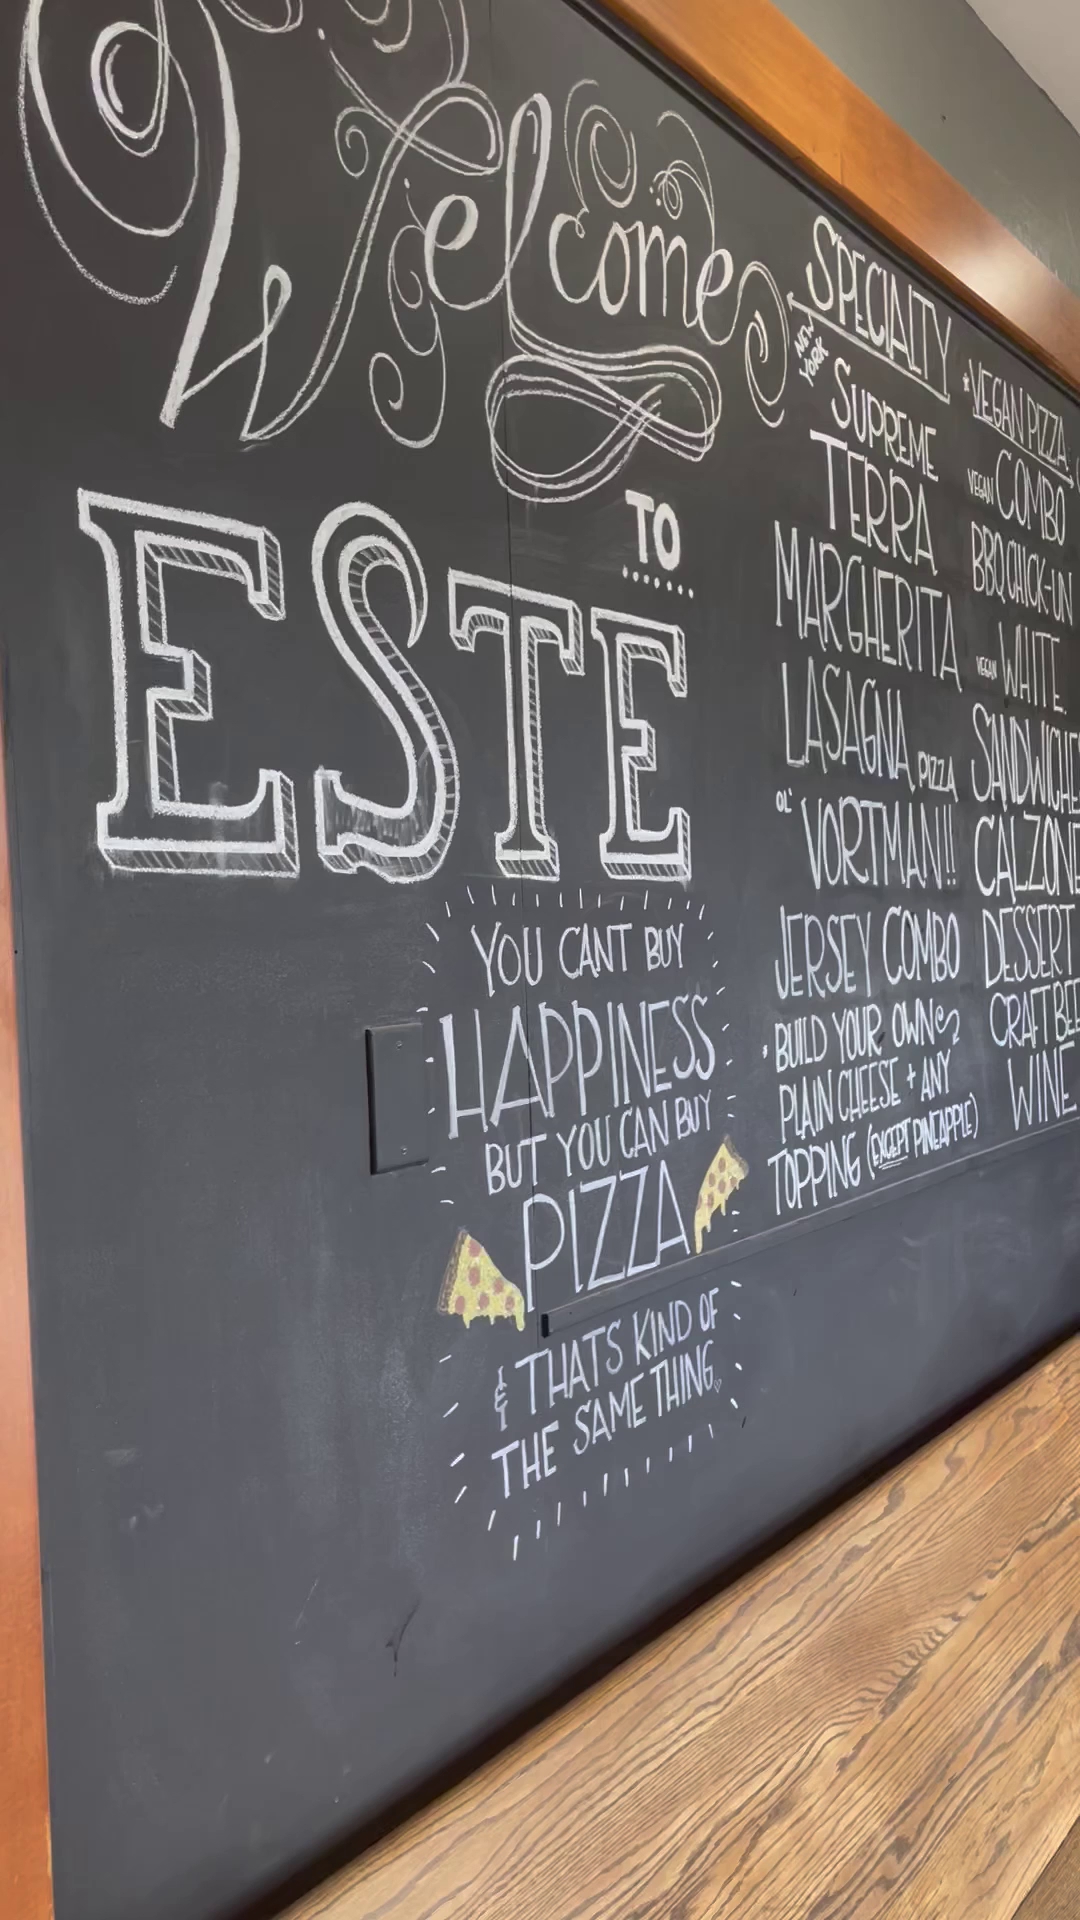 Welcome
TO
ESTE
YOU CANT BUY
HAPPINESS
BUT YOU CAN BUY
PIZZA
& THATS KIND OF
THE SAME THING.
SPECIALTY
NEW
YORK
SUPREME
TERRA
MARGHERITA
LASAGNA PIZZA
OL'
VORTMAN!!
JERSEY COMBO
• BUILD YOUR OWN
PLAIN CHEESE + ANY
TOPPING (EXCEPT PINEAPPLE)
*VEGAN PIZZA
VEGAN COMBO
BBQ CHICK-UN
VEGAN WHITE
SANDWICHE
CALZONE
DESSERT
CRAFT BEE
WINE